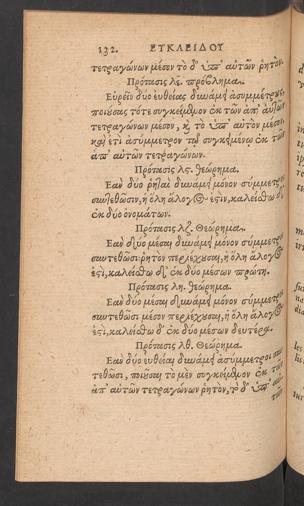 132. ΕΥΚΛΕΙΔΟΥ
τετραγώνων μέσον τὸ δ' ὑπ' αὐτῶν ῥητόν.
Πρότασις λε. πρόβλημα.
Εὑρεῖν δύο εὐθείας δυνάμει ἀσυμμέτρους,
ποιούσας τό τε συγκείμενον ἐκ τῶν ἀπ' αὐτῶν
τετραγώνων μέσον, καὶ τὸ ὑπ' αὐτῶν μέσον,
καὶ ἔτι ἀσύμμετρον τῷ συγκειμένῳ ἐκ τῶν
ἀπ' αὐτῶν τετραγώνων.
Πρότασις λς. θεώρημα.
Ἐὰν δύο ῥηταὶ δυνάμει μόνον σύμμετροι
συντεθῶσιν, ἡ ὅλη ἄλογός ἐστιν, καλείσθω δ'
ἐκ δύο ὀνομάτων.
Πρότασις λζ. Θεώρημα.
Ἐὰν δύο μέσαι δυνάμει μόνον σύμμετροι
συντεθῶσι ῥητὸν περιέχουσαι, ἡ ὅλη ἄλογός
ἐστι, καλείσθω δ' ἐκ δύο μέσων πρώτη.
Πρότασις λη. θεώρημα.
Ἐὰν δύο μέσαι δυνάμει μόνον σύμμετροι
συντεθῶσι μέσον περιέχουσαι, ἡ ὅλη ἄλογός
ἐστι, καλείσθω δ' ἐκ δύο μέσων δευτέρα.
Πρότασις λθ. Θεώρημα.
Ἐὰν δύο εὐθεῖαι δυνάμει ἀσύμμετροι συν
τεθῶσι, ποιοῦσαι τὸ μὲν συγκείμενον ἐκ τῶν
ἀπ' αὐτῶν τετραγώνων ῥητὸν, τὸ δ' ὑπ' αὐ
τῶν